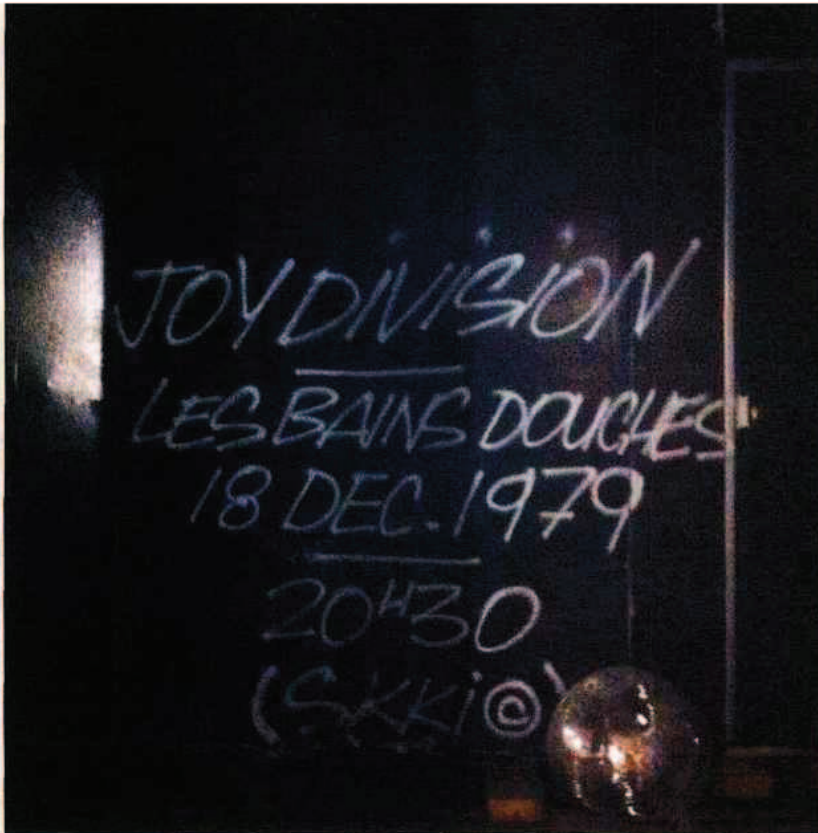 JOY DIVISION
LES BAINS DOUCHES
18 DEC. 1979
20H30
(SKKi©)